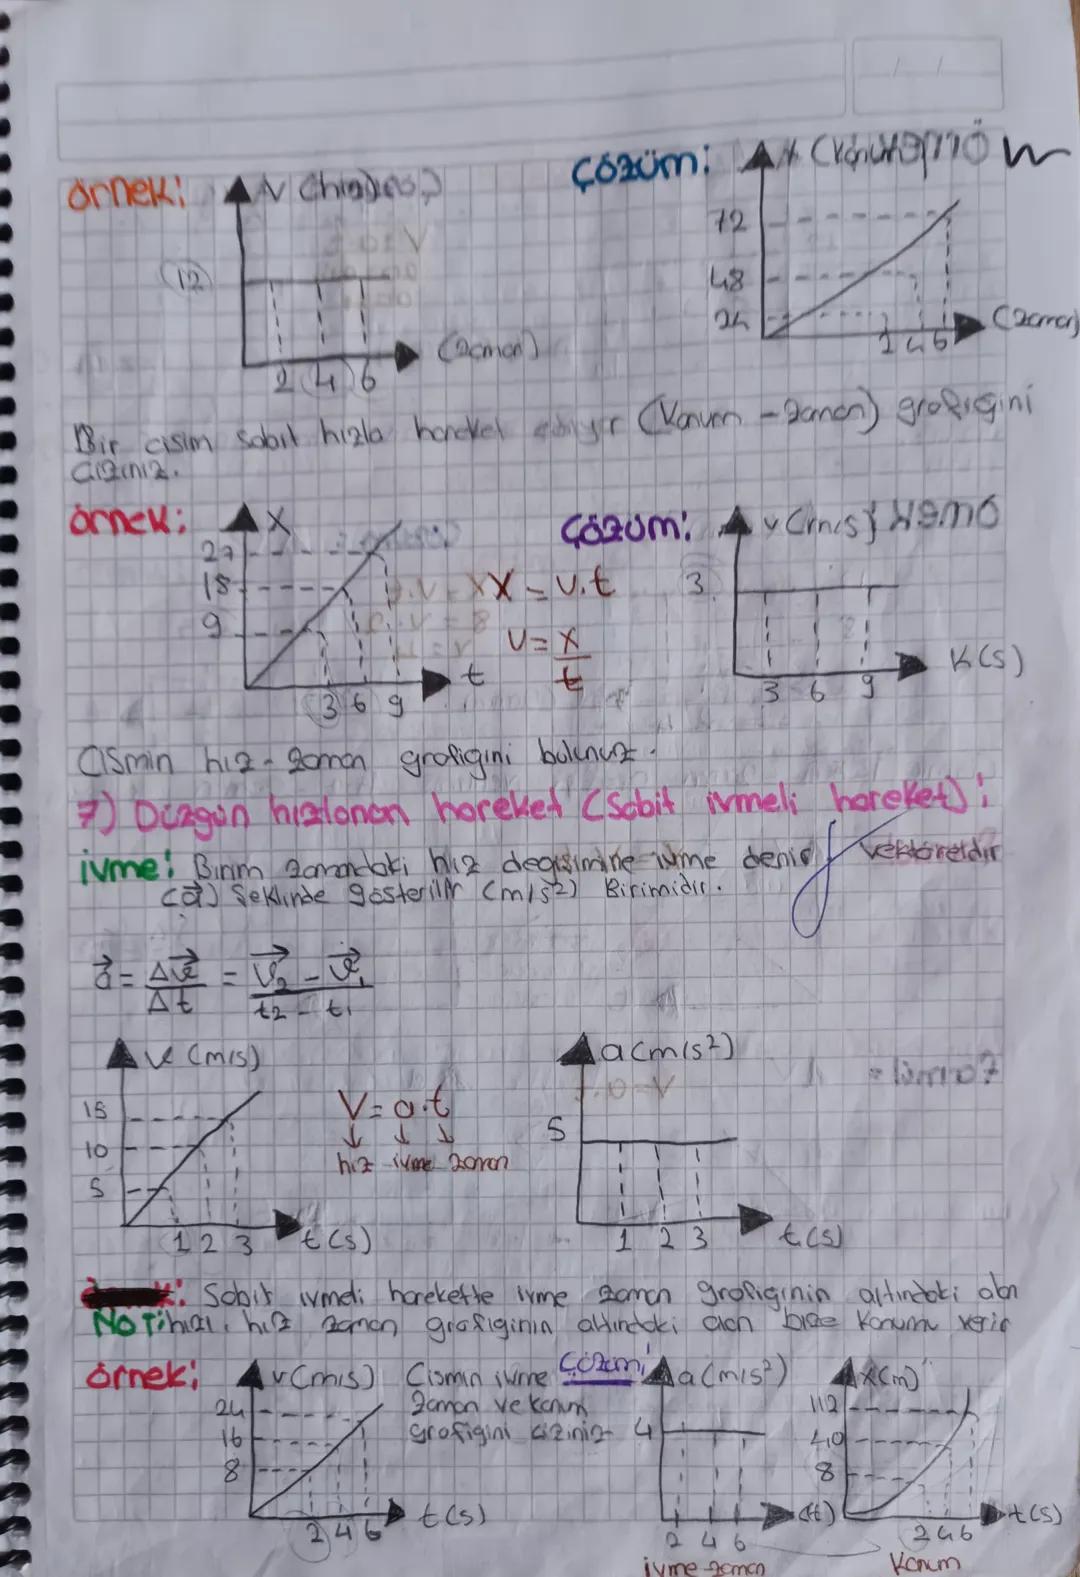 örnek:
V (hız)
12
(zaman)
2 4 6
Çözüm:
X (konum)
72
48
24
(zaman)
2 4 6
Bir cisim sabit hızla hareket ediyor (Konum - zaman) grafiğini
çiziniz.
örnek:
X
27
18
9
3 6 9
t
X = v.t
v = x
t
Çözüm:
v (m/s)
3
3 6 9
k(s)
Cismin hız - zaman grafiğini bulunuz.
7) Düzgün hızlanan hareket (Sabit ivmeli hareket):
ivme: Birim zamandaki hız değişimine ivme denir vektöreldir
(a) Şeklinde gösterilir (m/s²) Birimidir.
a = Δv = v₂ - v₁
Δt t2 - t1
v (m/s)
15
10
5
1 2 3 t(s)
V = a.t
hız ivme zaman
a(m/s²)
5
1 2 3 t(s)
Sabit ivmeli harekette ivme zaman grafiğinin altındaki alan
NOT: hızı, hız zaman grafiğinin altındaki alan bize konumu verir
örnek:
v(m/s)
24
16
8
2 4 6 t(s)
Cismin ivme
zaman ve konum
grafiğini çiziniz
Çözüm:
a(m/s²)
4
2 4 6 (t)
ivme zaman
X(m)
112
40
8
2 4 6 t(s)
Konum